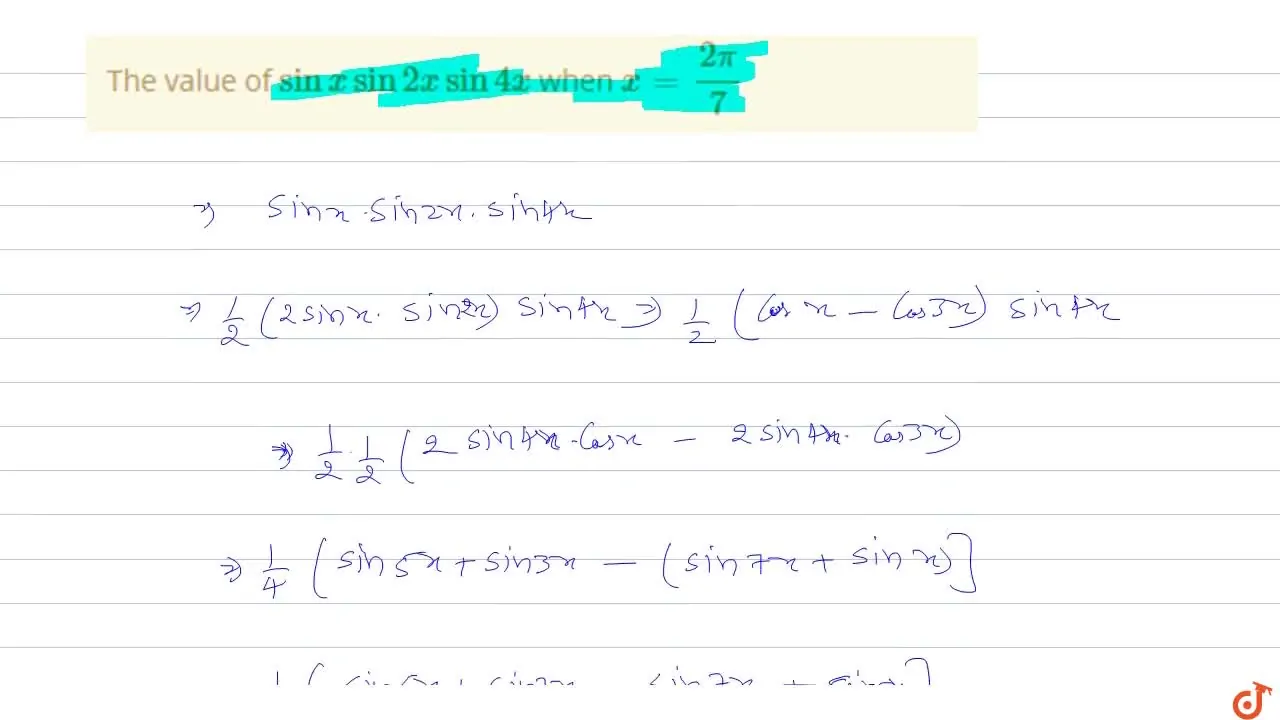 The value of sin x sin 2x sin 4x when x = 2π/7
⇒ sinx · sin2x · sin4x
⇒ 1/2 (2sinx · sin2x) sin4x ⇒ 1/2 (cos x − cos3x) sin4x
⇒ 1/2 · 1/2 (2 sin4x · cosx − 2sin4x · cos3x)
⇒ 1/4 [sin5x + sin3x − (sin7x + sinx)]